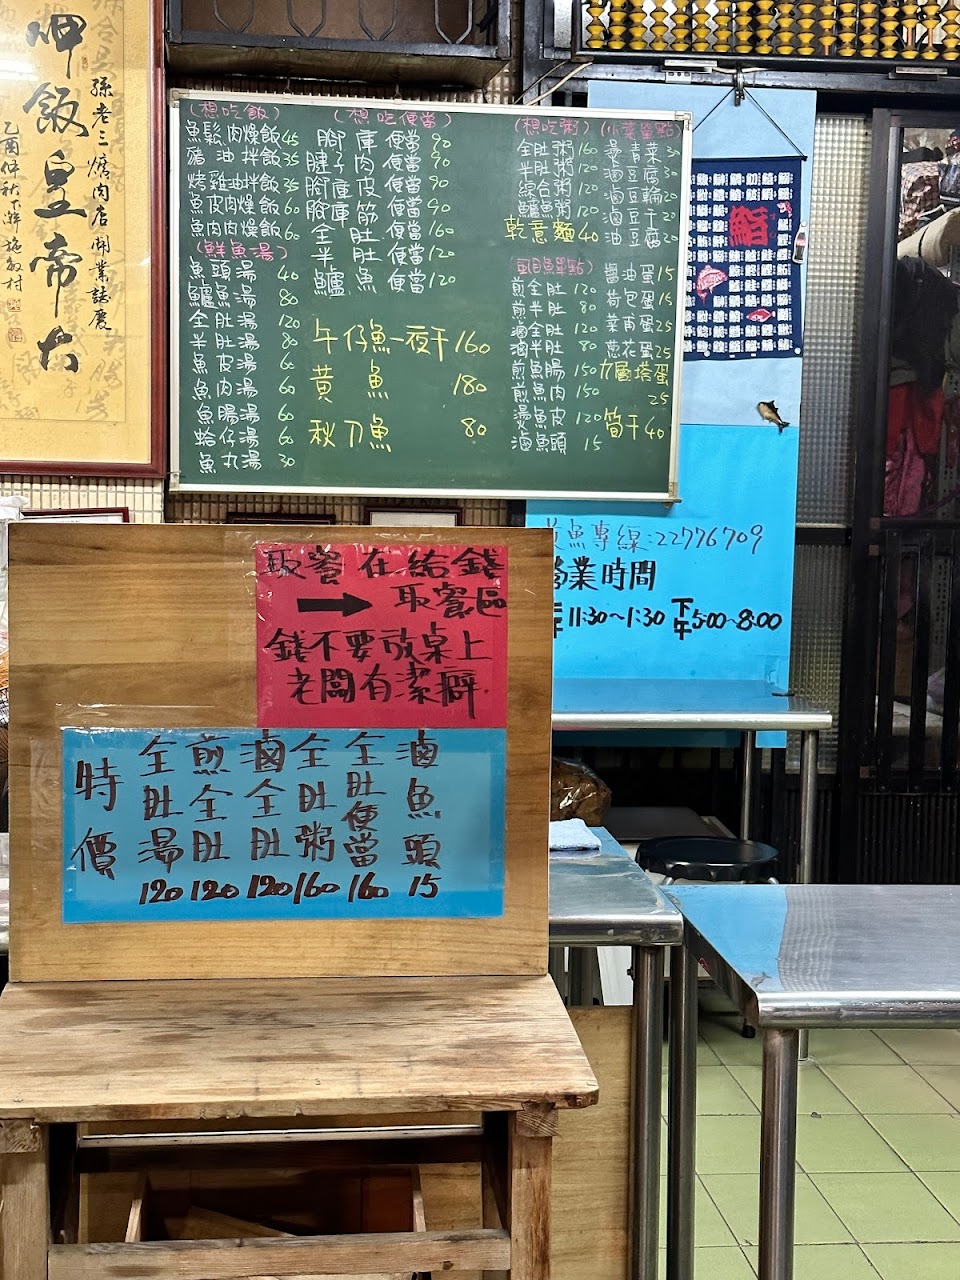 呷飯皇帝大
孫老三爌肉店開業誌慶
(想吃飯)
魚鬆肉燥飯45
豬油拌飯35
烤雞油拌飯35
魚皮肉燥飯60
魚肉肉燥飯60
(鮮魚湯)
魚頭湯 40
鱸魚湯 80
全肚湯 120
半肚湯 80
魚皮湯 60
魚肉湯 60
魚腸湯 60
蛤仔湯 60
魚丸湯 30
(想吃便當)
腳庫便當90
腱子肉便當90
腳庫皮便當90
腳庫筋便當90
全肚便當160
半肚便當120
鱸魚便當120
午仔魚一夜干160
黃魚 180
秋刀魚 80
(想吃粥)
全肚粥160
半肚粥120
綜合粥120
鱸魚粥120
乾意麵40
(小菜單點)
燙青菜30
滷豆腐30
滷豆輪20
滷豆干20
油豆腐20
虱目魚單點)
煎全肚 120
煎半肚 80
滷全肚 120
滷半肚 80
煎魚腸 150
煎魚肉 150
燙魚皮 120
滷魚頭 15
醬油蛋15
荷包蛋15
菜甫蛋25
蔥花蛋25
九層塔蛋
25
筍干40
鮨
魚專線:22776709
業時間
11:30~1:30 下午5:00~8:00
取餐在給錢
→ 取餐區
錢不要放桌上
老闆有潔癖
特價
全肚湯120
煎全肚120
滷全肚120
全肚粥160
全肚便當160
滷魚頭15